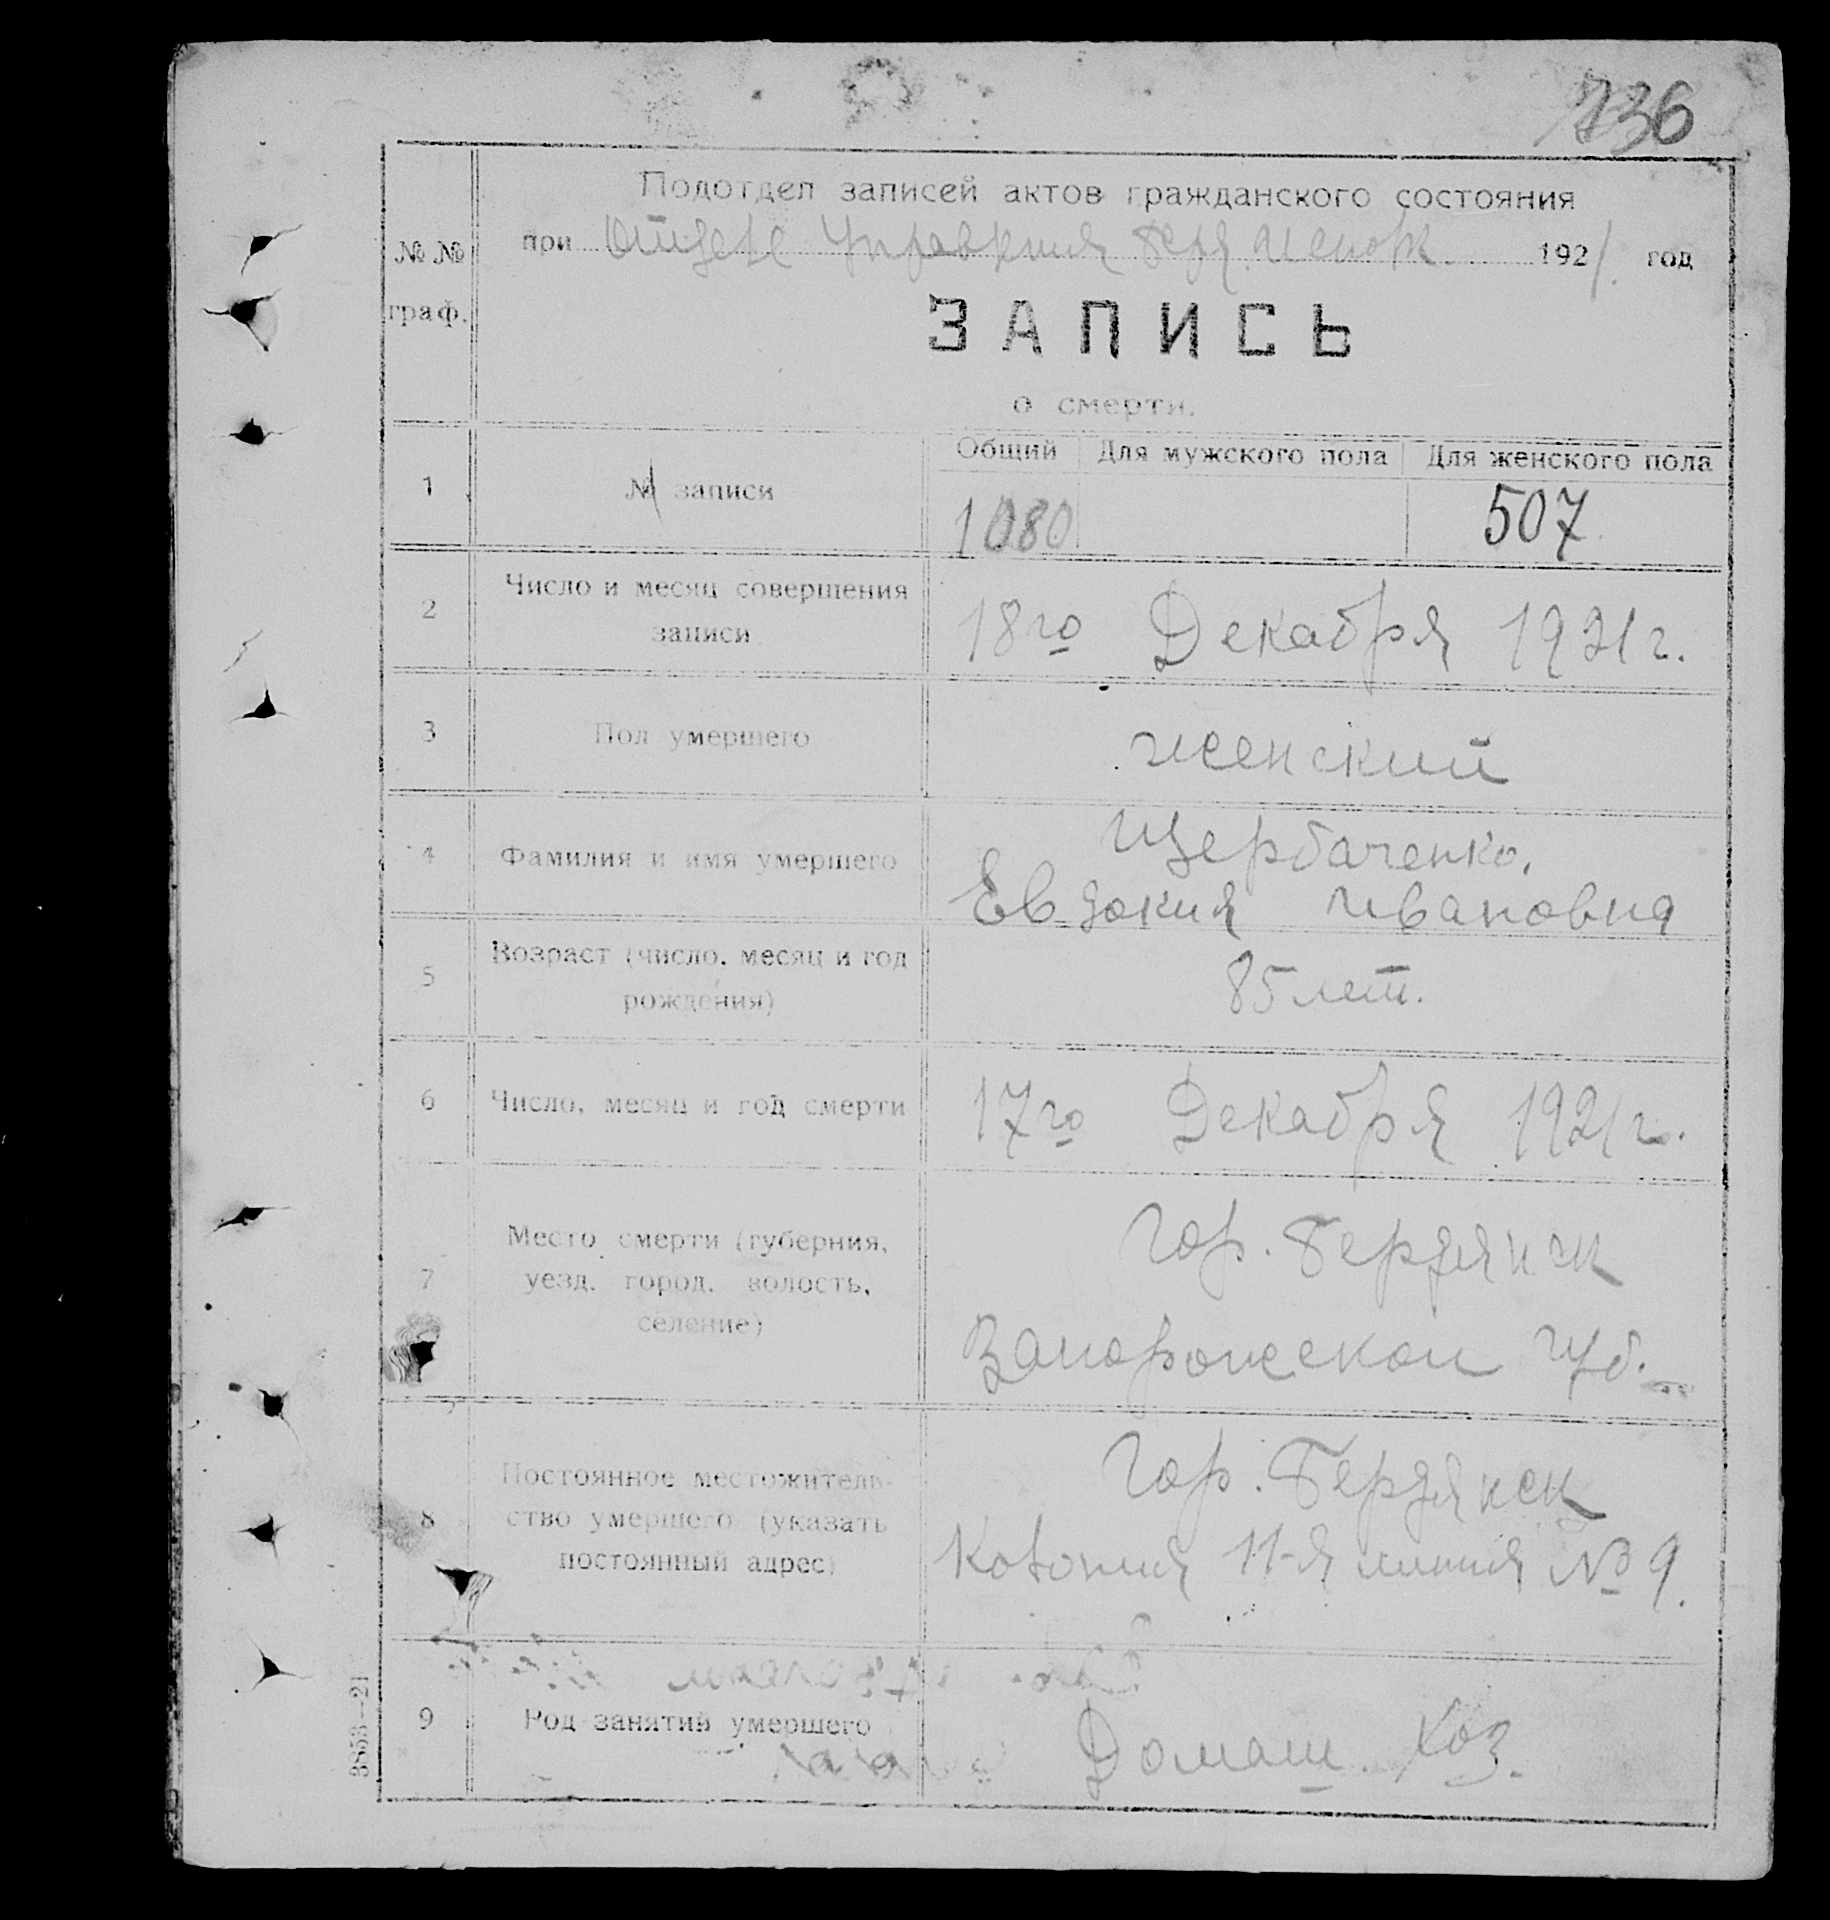 736
Подотдел записей актов гражданского состояния
№ № граф.
при Отделе Управления Берд. Исполк. 1921 год
ЗАПИСЬ
о смерти.
Общий Для мужского пола Для женского пола
1 № записи 1080 507
2 Число и месяц совершения записи 18го Декабря 1921г.
3 Пол умершего женский
4 Фамилия и имя умершего Щербаченко,
Евдокия Ивановна
5 Возраст (число, месяц и год рождения) 85 лет.
6 Число, месяц и год смерти 17го Декабря 1921г.
7 Место смерти (губерния, уезд, город, волость, селение) Гор. Бердянск
Запорожской губ.
8 Постоянное местожительство умершего (указать постоянный адрес) Гор. Бердянск
Колония 11-я линия № 9.
9 Род занятий умершего Домаш. Хоз.
3853—21